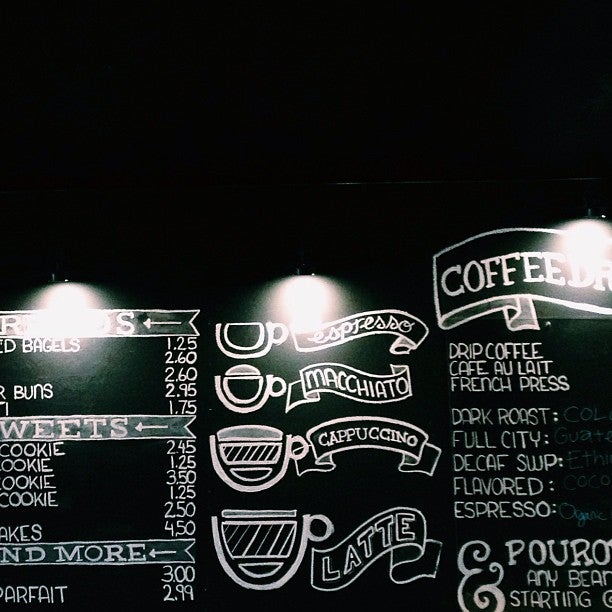 ED BAGELS 1.25
2.60
2.60
R BUNS 2.95
1.75
WEETS
COOKIE 2.45
OOKIE 1.25
OOKIE 3.50
COOKIE 1.25
2.50
AKES 4.50
ND MORE
3.00
PARFAIT 2.99
espresso
MACCHIATO
CAPPUCCINO
LATTE
COFFEE
DRIP COFFEE
CAFE AU LAIT
FRENCH PRESS
DARK ROAST: COL
FULL CITY: Guata
DECAF SWP: Ethi
FLAVORED: COCO
ESPRESSO: Oganic
& POURO
ANY BEAN
STARTING @